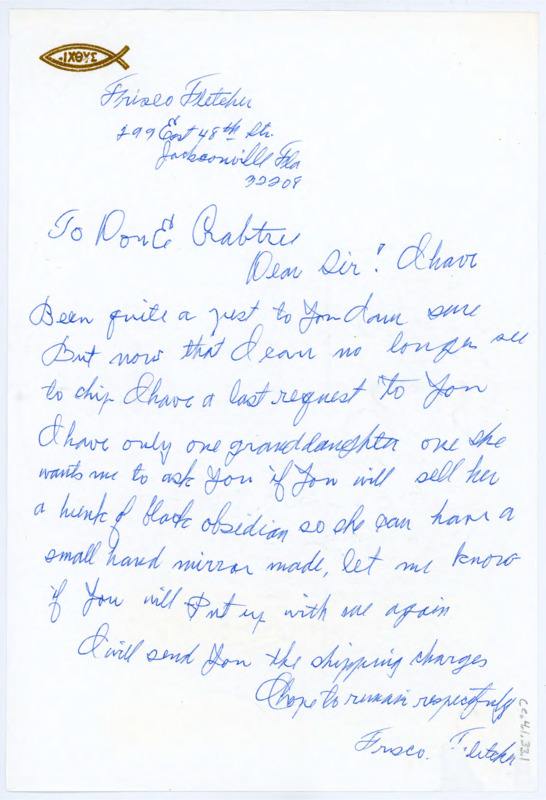 ΙΧΘΥΣ
Frisco Fletcher
299 East 48th Str.
Jacksonville Fla
32208
To Don E Crabtree
Dear Sir! I have
Been quite a pest to You I am sure
But now that I can no longer see
to chip I have a last request to You
I have only one granddaughter one she
wants me to ask You if You will sell her
a hunk of black obsidian so she can have a
small hand mirror made, let me know
if You will Put up with me again
I will send You the shipping charges
I hope to remain respectfully
Frisco. Fletcher
cc.41.32.1